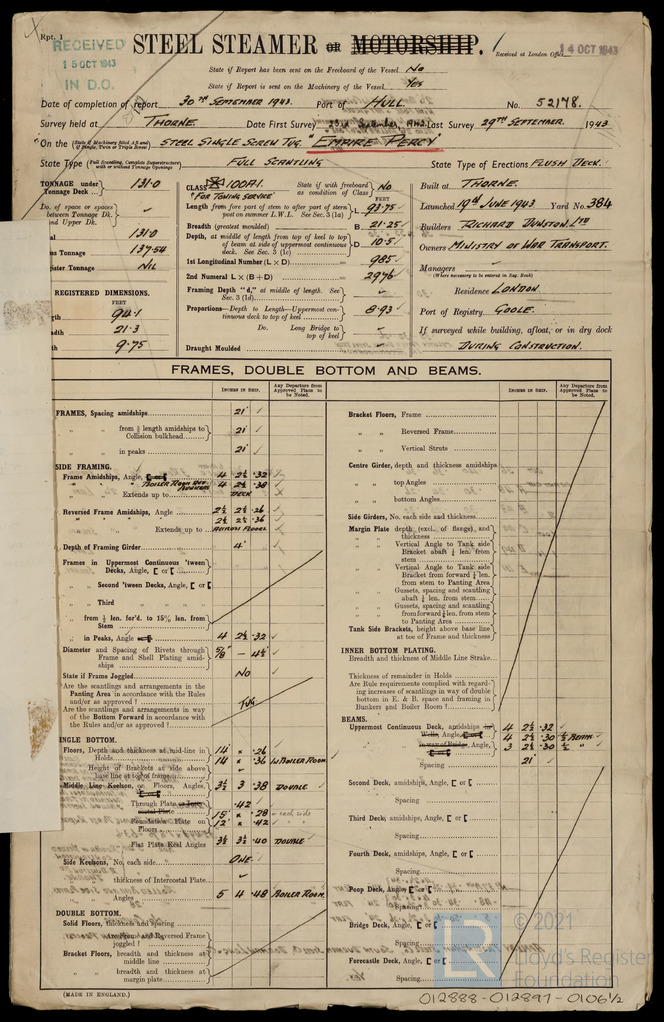 Rpt. 1
RECEIVED
15 OCT 1943
IN D.O.
STEEL STEAMER or MOTORSHIP.
Received at London Office
14 OCT 1943
State if Report has been sent on the Freeboard of the Vessel No
State if Report is sent on the Machinery of the Vessel Yes
Date of completion of report 30TH SEPTEMBER 1943. Port of HULL No. 52178.
Survey held at THORNE Date First Survey Last Survey 29TH SEPTEMBER. 1943
On the STEEL SINGLE SCREW TUG "EMPIRE PERCY"
State Type (Full Scantling, Complete Superstructure with or without Tonnage Openings) FULL SCANTLING State Type of Erections FLUSH DECK.
TONNAGE under Tonnage Deck 131.0
Do. of space or spaces between Tonnage Dk. and Upper Dk.
131.0
Tonnage 137.54
Tonnage NIL
REGISTERED DIMENSIONS.
FEET
94.1
21.3
9.75
CLASS 100A1. State if with freeboard as condition of Class No
"FOR TOWING SERVICE"
FEET
Length from fore part of stem to after part of stern post on summer L.W.L. See Sec. 3 (1a) L 93.75
Breadth (greatest moulded) B 21.25
Depth, at middle of length from top of keel to top of beam at side of uppermost continuous deck. See Sec. 3 (1c) D 10.5
1st Longitudinal Number (L × D) 985
2nd Numeral L × (B + D) 2976
Framing Depth "d," at middle of length. See Sec. 3 (1d)
Proportions—Depth to Length—Uppermost continuous deck to top of keel 8.93
Do. Long Bridge to top of keel
Draught Moulded
Built at THORNE.
Launched 19TH JUNE 1943 Yard No. 384
Builders RICHARD DUNSTON. LTD
Owners MINISTRY OF WAR TRANSPORT.
Managers
(Where necessary to be entered in Reg. Book)
Residence LONDON.
Port of Registry GOOLE.
If surveyed while building, afloat, or in dry dock
DURING CONSTRUCTION.
FRAMES, DOUBLE BOTTOM AND BEAMS.
INCHES IN SHIP.
Any Departure from Approved Plans to be Noted.
FRAMES, Spacing amidships 21"
" " from ⅗ length amidships to Collision bulkhead 21"
" " in peaks 21"
SIDE FRAMING.
Frame Amidships, Angle, 4 2½ .32
" " BOILER ROOM 4 2½ .38
" Extends up to DECK
Reversed Frame Amidships, Angle 2½ 2½ .26
2½ 2½ .36
" " Extends up to
Depth of Framing Girder 4"
Frames in Uppermost Continuous 'tween Decks, Angle, [ or [
" Second 'tween Decks, Angle, [ or [
" Third " "
" from ⅕ len. for'd. to 15% len. from Stem
" in Peaks, Angle 4 2½ .32
Diameter and Spacing of Rivets through Frame and Shell Plating amidships 5/8" — 4½"
State if Frame Joggled No
Are the scantlings and arrangements in the Panting Area in accordance with the Rules and/or as approved?
Are the scantlings and arrangements in way of the Bottom Forward in accordance with the Rules and/or as approved?
TUG
SINGLE BOTTOM.
Floors, Depth and thickness at mid-line in Holds 14" × .26
14" × .36 BOILER ROOM
" Height of Brackets at side above base line at top of frame
Middle Line Keelson, on Floors, Angles 3½ 3 .38 DOUBLE
" " Through Plate .42
" " Foundation Plate on Floors 12" × .42
" " Flat Plate Keel Angles 3½ 3½ .40 DOUBLE
Side Keelsons, No. each side ONE.
" " thickness of Intercostal Plate
" " Angles 5 4 .48 BOILER ROOM
DOUBLE BOTTOM.
Solid Floors, thickness and spacing
" " Are Frame and Reversed Frame joggled?
Bracket Floors, breadth and thickness at middle line
" " breadth and thickness at margin plate
(MADE IN ENGLAND.)
INCHES IN SHIP.
Any Departure from Approved Plans to be Noted.
Bracket Floors, Frame
" " Reversed Frame
" " Vertical Struts
Centre Girder, depth and thickness amidships
" " top Angles
" " bottom Angles
Side Girders, No. each side and thickness
Margin Plate depth (excl. of flange), and thickness
" " Vertical Angle to Tank side Bracket abaft ¼ len. from stem
" " Vertical Angle to Tank side Bracket from forward ¼ len. from stem to Panting Area
" " Gussets, spacing and scantling abaft ¼ len. from stem
" " Gussets, spacing and scantling from forward ¼ len. from stem to Panting Area
Tank Side Brackets, height above base line at toe of Frame and thickness
INNER BOTTOM PLATING.
Breadth and thickness of Middle Line Strake
Thickness of remainder in Holds
Are Rule requirements complied with regarding increases of scantlings in way of double bottom in E. & B. space and framing in Bunkers and Boiler Room?
BEAMS.
Uppermost Continuous Deck, amidships 4 2½ .32
4 2½ .30 ½ BEAM
3 2½ .30 ½ "
" " Spacing 21"
Second Deck, amidships, Angle, [ or [
Spacing
Third Deck, amidships, Angle, [ or [
Spacing
Fourth Deck, amidships, Angle, [ or [
Spacing
Poop Deck, Angle, [ or [
Spacing
Bridge Deck, Angle, [ or [
Spacing
Forecastle Deck, Angle, [ or [
Spacing
© 2021
Lloyd's Register
Foundation
LR
012888-012897-0106½